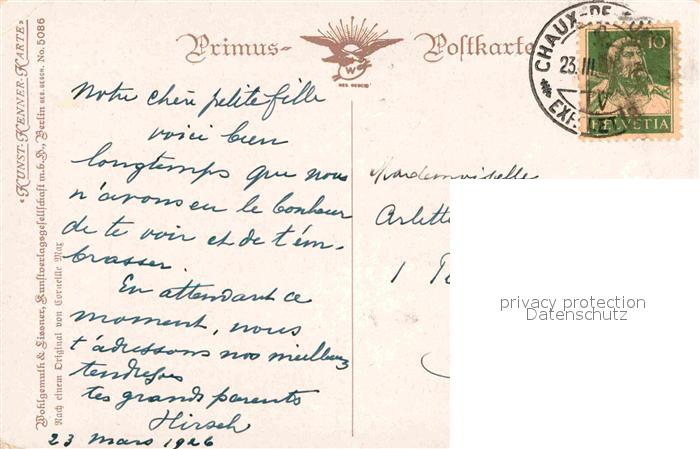 Primus- Postkarte
W
GES. GESCH.
"KUNST-KENNER-KARTE"
Wohlgemuth & Lissner, Kunstverlagsgesellschaft m.b.H., Berlin No. 5086
Nach einem Original von Corneille Max
CHAUX-DE-
23. III.
HELVETIA
10
Notre chéri petite fille
voici bien
longtemps que nous
n'avons eu le bonheur
de te voir et de t'em-
brasser.
En attendant ce
moment, nous
t'adressons nos meilleurs
tendresses
tes grands parents
Hirsch
23 mars 1926
Mademoiselle
Arlette
1
privacy protection
Datenschutz